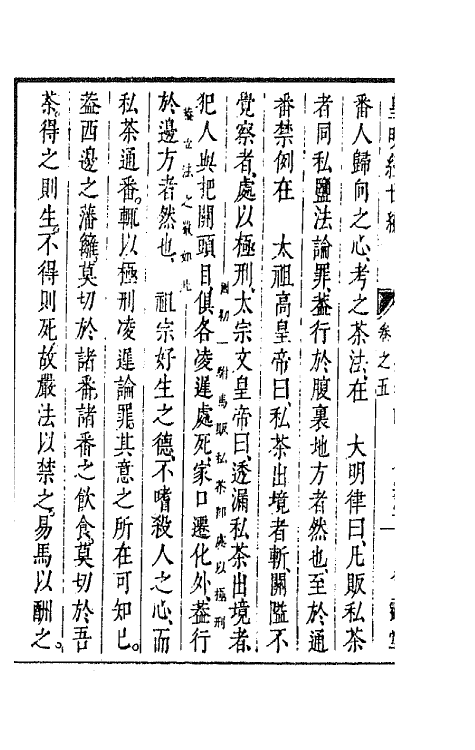 皇明經世編
卷之五
番人歸向之心、考之茶法、在　大明律曰、凡販私茶
者同私鹽法論罪、葢行於腹裏地方者然也、至於通
番禁例在　太祖高皇帝曰、私茶出境者斬、關隘不
覺察者、處以極刑、太宗文皇帝曰、透漏私茶出境者、
國初一駙馬販私茶卽真以極刑
犯人與把關頭目、俱各凌遲處死、家口遷化外、葢行
葢立法之嚴如此
於邊方者然也、　祖宗好生之德、不嗜殺人之心、而
私茶通番、輒以極刑凌遲論罪、其意之所在可知已。
葢西邊之藩籬、莫切於諸番、諸番之飲食、莫切於吾
茶、得之則生、不得則死、故嚴法以禁之。易馬以酬之。